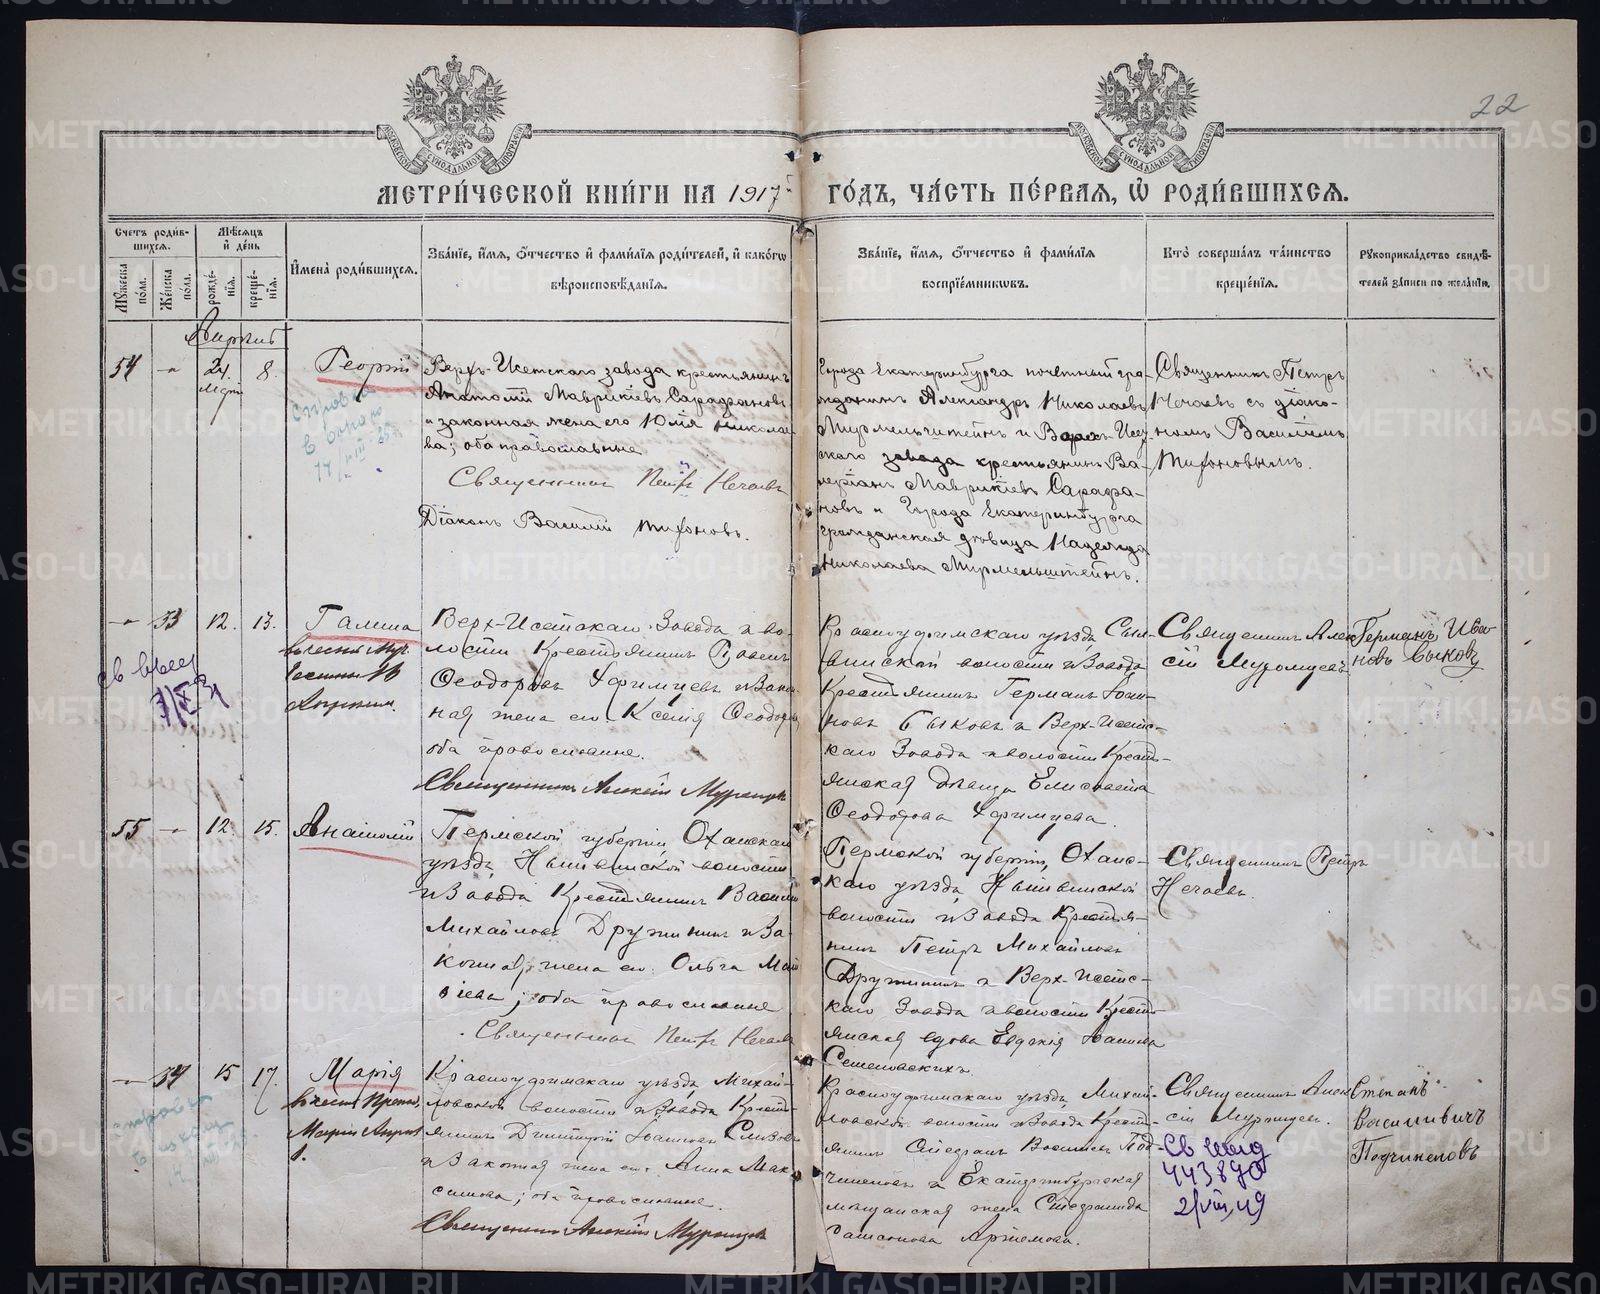 22
МЕТРИ́ЧЕСКОЙ КНИ́ГИ НА 1917й ГО́ДЪ, ЧА́СТЬ ПЕ́РВАЯ, Ѡ҆ РОДИ́ВШИХСЯ.
Счетъ роди́вшихся.
Мꙋжеска по́ла.
Же́нска по́ла.
Мѣ́сяцъ и҆ де́нь
рожде́нїя.
креще́нїя.
И҆мена̀ роди́вшихся.
Зва́нїе, и҆́мя, ѻ҆́тчество и҆ фами́лїя роди́телей, и҆ како́гѡ
вѣроисповѣ́данїя.
Зва́нїе, и҆́мя, ѻ҆́тчество и҆ фами́лїя
воспрїе́мникѡвъ.
Кто̀ соверша́лъ та́инство
креще́нїя.
Рꙋкоприкла́дство свидѣ́-
телей за́писи по жела́нїю.
54
24.
Март
8.
Георгій
Верхъ-Исетскаго завода крестьянинъ
Анатолій Маврикіевъ Сарафановъ
и законная жена его Юлія Николае-
ва; оба православные
Священникъ Петръ Нечаевъ
Діаконъ Василій Тихоновъ.
Города Екатеринбурга почетный гра-
жданинъ Александръ Николаевъ
Мирмельштейнъ и Верхъ-Исет-
скаго завода крестьянинъ Ва-
леріанъ Маврикіевъ Сарафа-
новъ и Города Екатеринбурга
гражданская дѣвица Надежда
Николаева Мирмельштейнъ.
Священникъ Петръ
Нечаевъ съ діако-
номъ Василіемъ
Тихоновымъ.
33
12.
13.
Галина
Верх-Исетскаго Завода и во-
лости Крестьянинъ Павелъ
Феодоровъ Ефимцевъ и Закон-
ная жена его Ксенія Феодоров
оба православные.
Священникъ Алексій Муромцевъ
Красноуфимскаго уѣзда, Сыл-
винской волости и Завода
Крестьянинъ Германъ Іоан-
новъ Быковъ и Верх-Исетс-
каго Завода и волости Кресть-
янская дѣвица Елисавета
Феодорова Ефимцева.
Священникъ Алек
сій Муромцевъ.
Германъ Ива
новъ Быковъ
55
12.
15.
Анатолій
Пермской губерніи, Оханскаго
уѣзда, Нытвенской волости
и Завода Крестьянинъ Василій
Михайловъ Дружининъ и За-
конная жена его Ольга Мат
віева; оба православные
Священникъ Петръ Нечаевъ
Пермской губерніи, Оханс-
каго уѣзда, Нытвенской
волости и Завода Крестья-
нинъ Петръ Михайловъ
Дружининъ и Верх-Исетс-
каго Завода и волости Кресть-
янская вдова Евдокія Іоаннова
Священникъ Петръ
Нечаевъ.
34
15
17.
Марія
Красноуфимскаго уѣзда, Михай-
ловской волости и Завода Кресть-
янинъ Димитрій Іоанновъ
и Законная жена его Анна Мак-
симова; оба православные.
Священникъ Алексій Муромцевъ
Красноуфимскаго уѣзда, Михай-
ловской волости и Завода Кресть-
янинъ Стефанъ Васильевъ Под-
чиненовъ и Екатеринбургская
мѣщанская жена
Артемова.
Священникъ Алек
сій Муромцевъ.
443890
2/VIII 49
Степанъ
Васильевичъ
Подчиненовъ